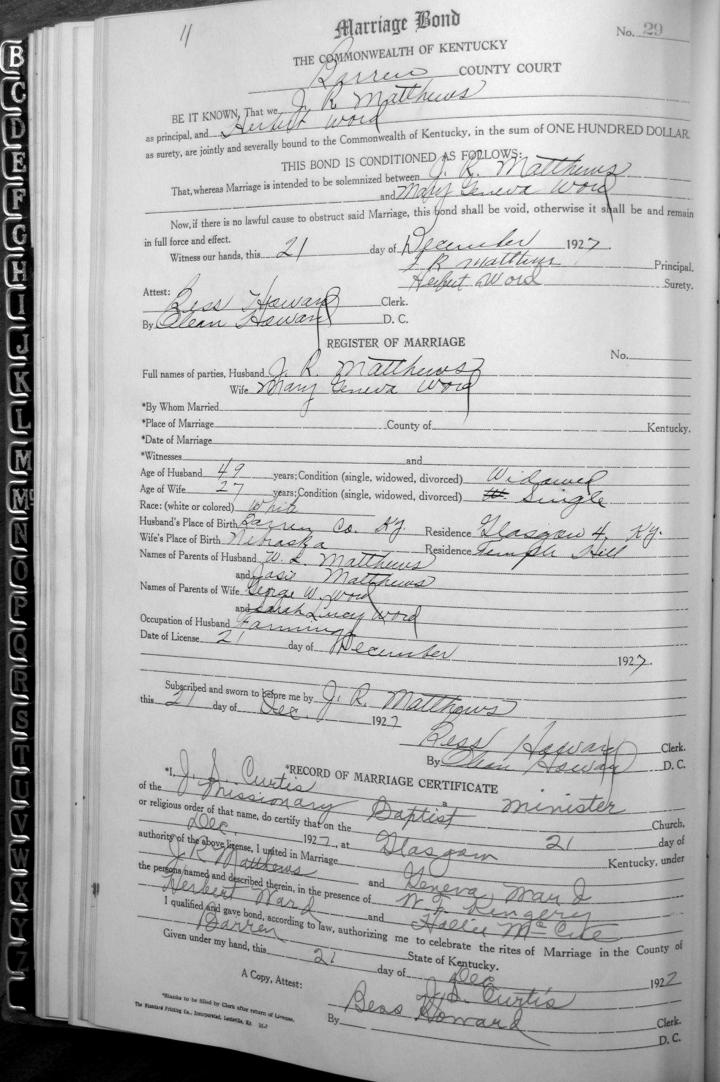 11
Marriage Bond
No. 29
THE COMMONWEALTH OF KENTUCKY
Barren COUNTY COURT
BE IT KNOWN, That we J. R. Matthews
as principal, and Herbert Word
as surety, are jointly and severally bound to the Commonwealth of Kentucky, in the sum of ONE HUNDRED DOLLAR
THIS BOND IS CONDITIONED AS FOLLOWS:
That, whereas Marriage is intended to be solemnized between J. R. Matthews
and Mary Geneva Word
Now, if there is no lawful cause to obstruct said Marriage, this bond shall be void, otherwise it shall be and remain
in full force and effect.
Witness our hands, this 21 day of December 1927
J R Matthews Principal.
Herbert Word Surety.
Attest:
Bess Howard Clerk.
By Clean Howard D. C.
REGISTER OF MARRIAGE
No.
Full names of parties, Husband J. R. Matthews
Wife Mary Geneva Word
*By Whom Married
*Place of Marriage County of Kentucky.
*Date of Marriage
*Witnesses and
Age of Husband 49 years; Condition (single, widowed, divorced) Widowed
Age of Wife 27 years; Condition (single, widowed, divorced) Single
Race: (white or colored) White
Husband's Place of Birth Barren Co. Ky Residence Glasgow 4, Ky.
Wife's Place of Birth Nebraska Residence Temple Hill
Names of Parents of Husband W. L. Matthews
and Josie Matthews
Names of Parents of Wife George W. Word
and Sarah Lucy Word
Occupation of Husband Farming
Date of License 21 day of December 1927.
Subscribed and sworn to before me by J. R. Matthews
this 21 day of Dec. 1927
Bess Howard Clerk.
By Clean Howard D. C.
*RECORD OF MARRIAGE CERTIFICATE
*I, J. S. Curtis a minister
of the Missionary Baptist Church,
or religious order of that name, do certify that on the 21 day of
Dec 1927, at Glasgow Kentucky, under
authority of the above license, I united in Marriage
J R Matthews and Geneva Ward
the persons named and described therein, in the presence of W F Kingery
Herbert Ward and Hallie McCue
I qualified and gave bond, according to law, authorizing me to celebrate the rites of Marriage in the County of
Barren State of Kentucky.
Given under my hand, this 21 day of Dec 1927
J. S. Curtis
A Copy, Attest: Bess Howard Clerk.
By D. C.
*Blanks to be filled by Clerk after return of License.
The Standard Printing Co., Incorporated, Louisville, Ky.
B
C
D
E
F
G
H
I
J
K
L
M
Mc
N
O
P
Q
R
S
T
U
V
W
X
Y
Z